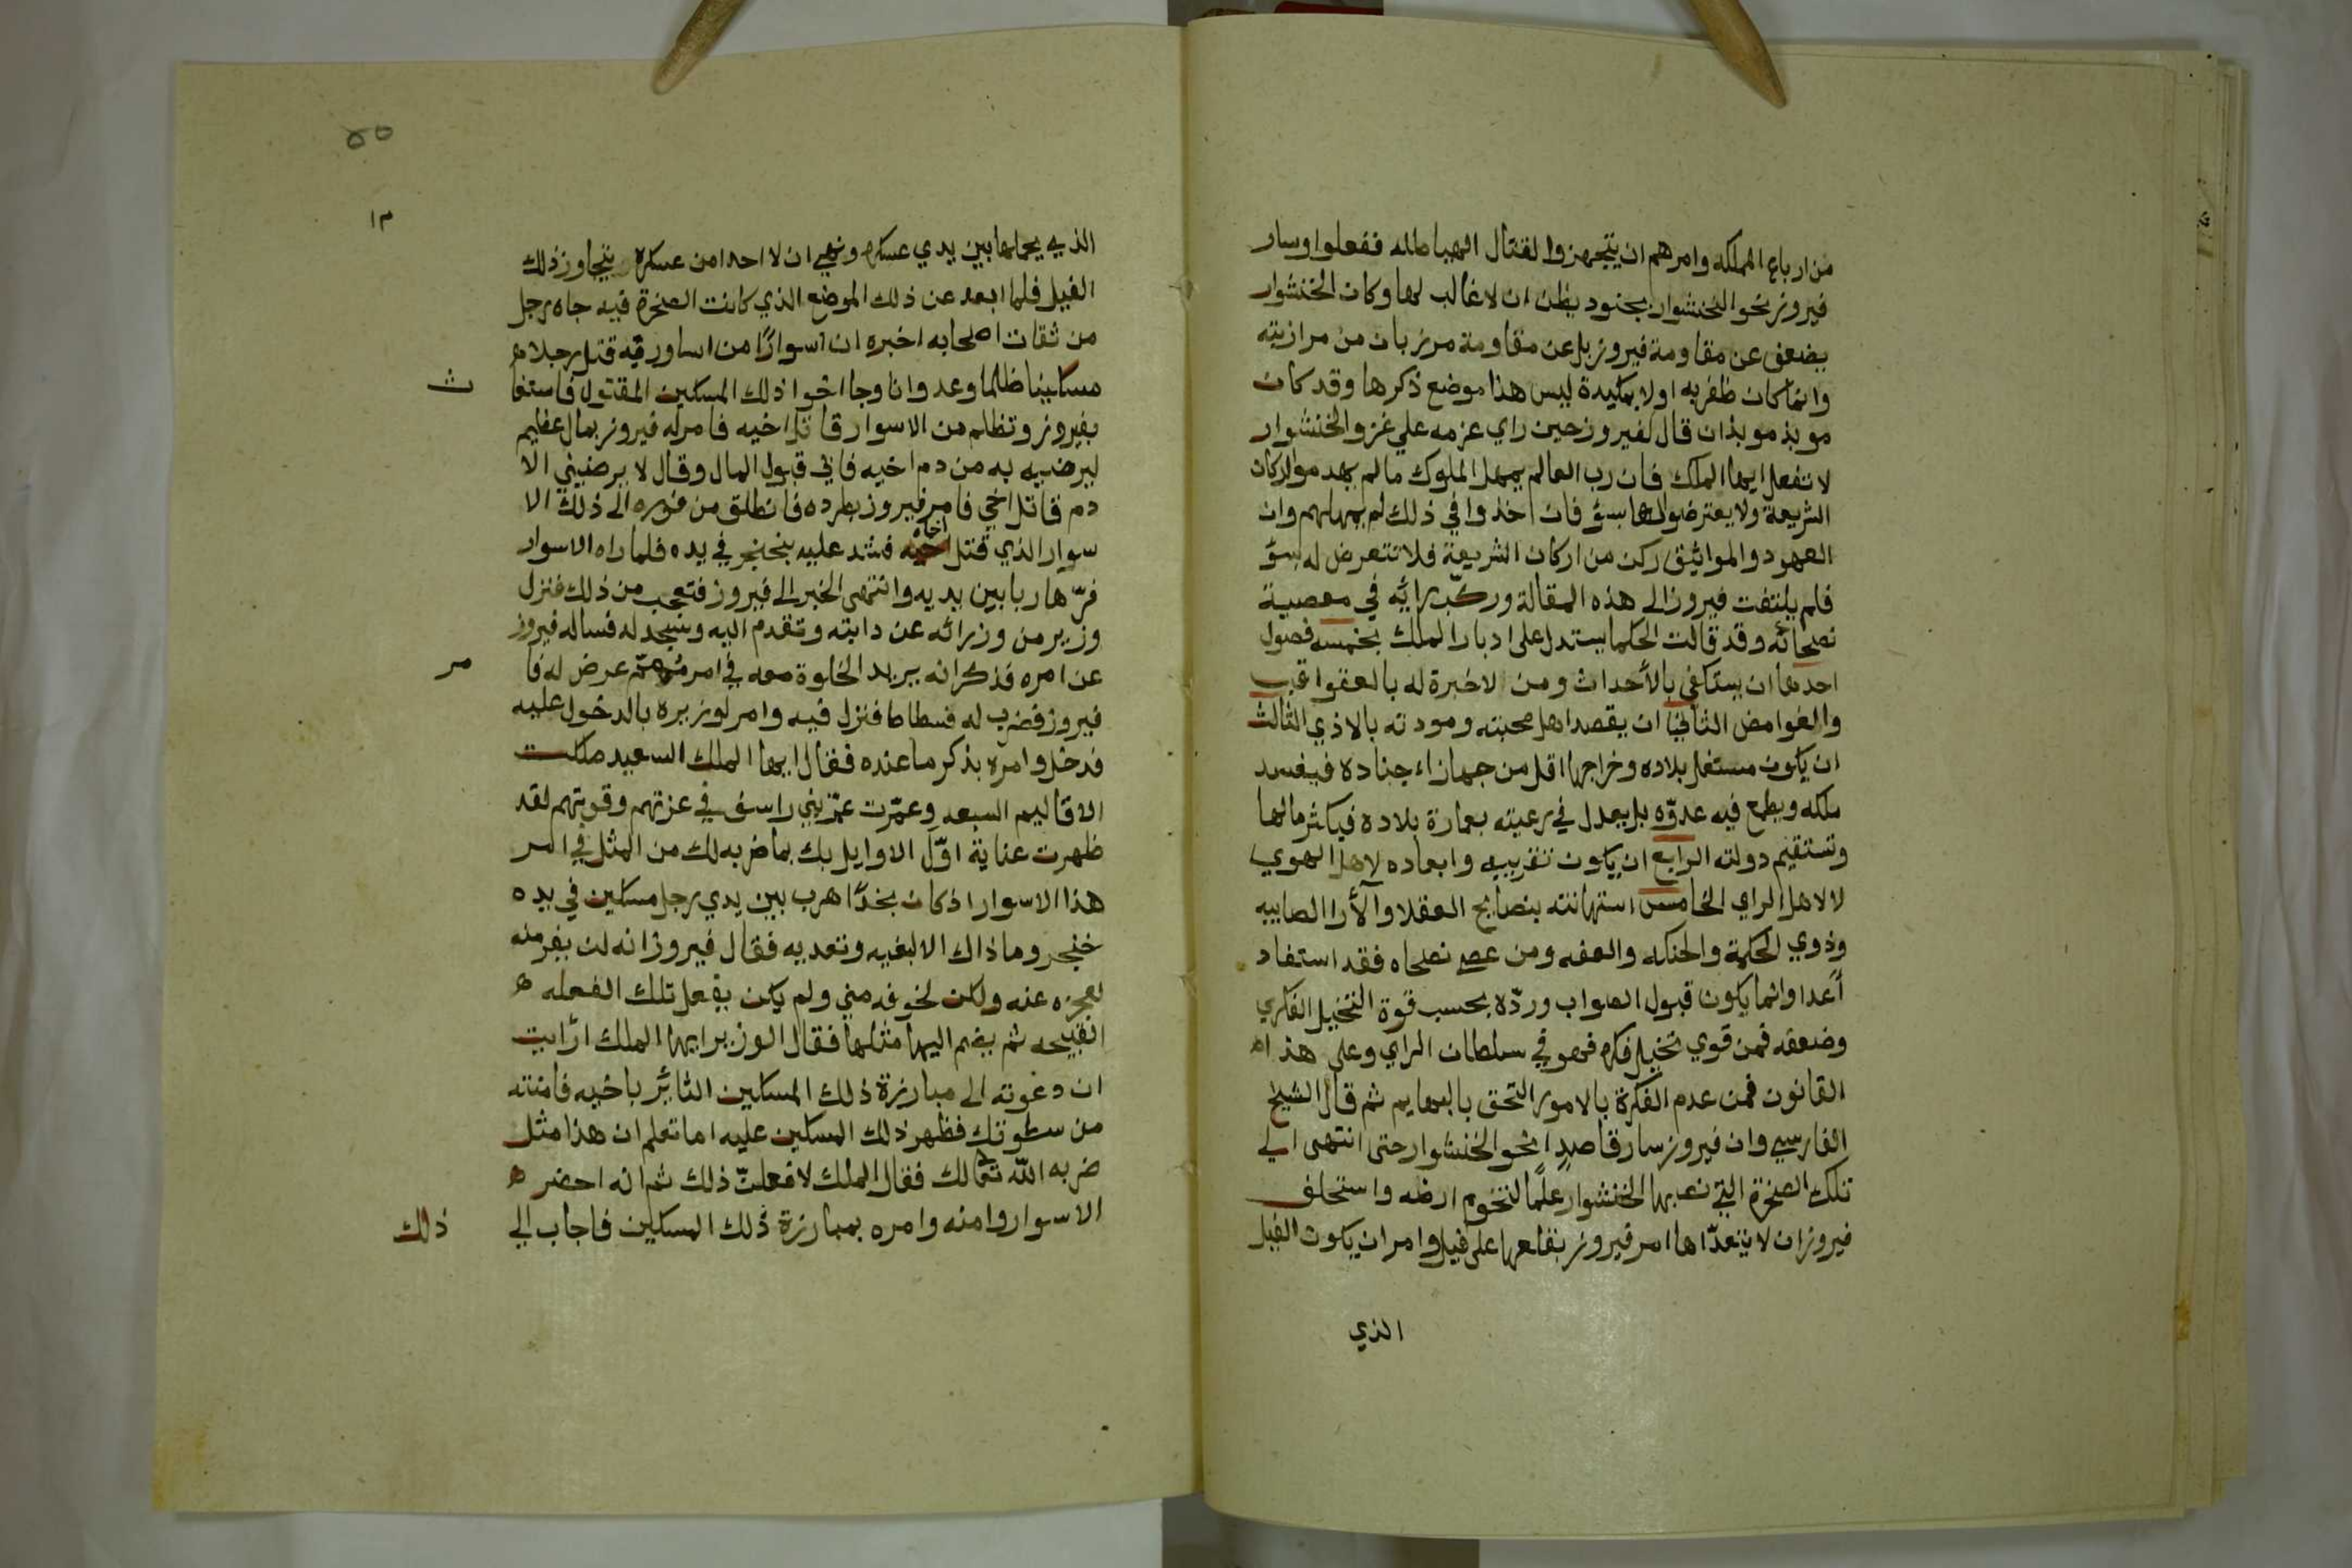 من ارباع المملكه وامرهم ان يتجهزوا لقتال الهياطله ففعلوا وسار
فيروز نحو الخنشوار بجنود يظن ان لا غالب لها وكان الخنشوار
يضعف عن مقاومة فيروز بل عن مقاومة مرزبان من مرازبته
وانما كان ظفر به اولا بمكيدة ليس هذا موضع ذكرها وقد كان
موبذ موبذان قال لفيروز حين راي عزمه علي غزو الخنشوار
لا تفعل ايها الملك فان رب العالم يمهل الملوك ما لم
الشريعة ولا يعترضوا لها بسؤ فان اخذوا في ذلك لم يمهلهم وان
العهود والمواثيق ركن من اركان الشريعة فلا تتعرض له بسؤ
فلم يلتفت فيروز الى هذه المقالة وركب رايه في معصية
نصحائه وقد قالت الحكما يستدل على ادبار الملك بخمسه فصول
احدها ان يستكفي بالأحداث ومن لا خبرة له بالعقواقب
والغوامض الثاني ان يقصد اهل محبته ومودته بالاذي الثالث
ان يكون مستغل بلاده وخراجها اقل من جناده فيفسد
ملكه ويطمع فيه عدوّه بل يعدل في رعيته بعمارة بلاده فيكثر مالها
وتستقيم دولته الرابع ان يكون تقريبه وابعاده لاهل الهوي
لا لاهل الراي الخامس استهانته بنصايح العقلا والأرا الصايبه
وذوي الحكمة والحنكه والعفه ومن عصى نصحاه فقد استفاد
أعدا وانما يكون قبول الصواب وردّه بحسب قوة التخيل الفكري
وضعفه فمن قوي تخيل فكره فهو في سلطان الراي وعلى هذا
القانون فمن عدم الفكرة بالامور التحق بالبهايم ثم قال الشيخ
الفارسي وان فيروز سار قاصدا نحو الخنشوار حتى انتهى الي
تلك الصخرة التي نصبها الخنشوار علمًا لتخوم ارضه واستحلف
فيروز ان لا يتعدّاها امر فيروز بقلعها على فيل وامر ان يكون الفيل
الذي
٥٥
١٣
الذي يحملها بين يدي عسكره ونهي ان لا احدا من عسكره يتجاوز ذلك
الفيل فلما ابعد عن ذلك الموضع الذي كانت الصخرة فيه جاه رجل
من ثقات اصحابه اخبره ان اسوارًا من اساورته قتل رجلا
مسكينا ظلما وعدوانا وجا اخوا ذلك المسكين المقتول فاستغا ث
بفيروز وتظلم من الاسوار قاتل اخيه فامر له فيروز بمال عظيم
ليرضيه به من دم اخيه فابي قبول المال وقال لا يرضيني الا
دم قاتل اخي فامر فيروز بطرده فانطلق من فوره الى ذلك الا
سوار الذي قتل اخاه فشد عليه بخنجر في يده فلما راه الاسوار
فرّ هاربا بين يديه وانتهى الخبر الى فيروز فتعجب من ذلك فنزل
وزير من وزرائه عن دابته وتقدم اليه وسجد له فساله فيروز
عن امره فذكر انه يريد الخلوة معه في امر مهمّ عرض له فا مر
فيروز فضرب له فسطاطا فنزل فيه وامر لوزيره بالدخول عليه
فدخل وامره بذكر ما عنده فقال ايها الملك السعيد ملكت
الاقاليم السبعه وعمّرت في عزتهم وقوتهم لقد
ظهرت عناية اوّل الاوايل بك بما ضربه لك من المثل في امر
هذا الاسوار اذ كان هرب بين يدي رجل مسكين في يده
خنجر وما ذاك الا لبغيه وتعديه فقال فيروز انه لن يفر منه
لعجزه عنه ولكن لخوفه مني ولم يكن يفعل تلك الفعله
القبيحه ثم يضم اليها مثلها فقال الوزير ايها الملك ارأيت
ان دعوته الى مبارزة ذلك المسكين الثائر باخيه فامنته
من سطوتك فظهر ذلك المسكين عليه اما تعلم ان هذا مثل
ضربه اللّه تعالى لك فقال الملك لافعلنّ ذلك ثم انه احضر
الاسوار وامنه وامره بمبارزة ذلك المسكين فاجاب الي ذلك